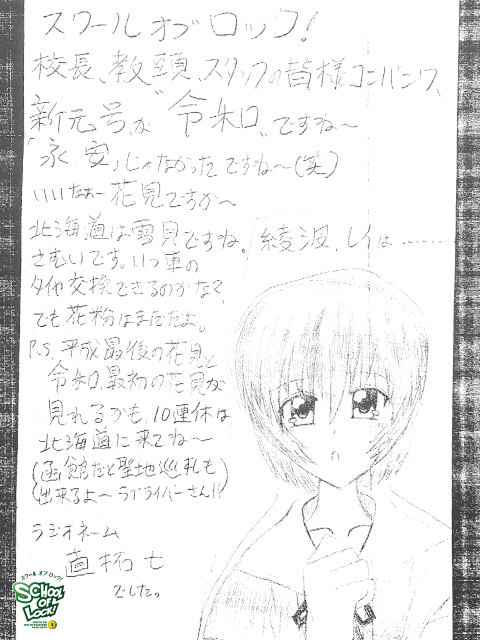 スクール オブ ロック!
校長、教頭、スタッフの皆様コンバンワ、
新元号が"令和"ですね〜
「永安」じゃなかったですね〜(笑)
いいなぁー花見ですか〜
北海道は雪見ですね。
さむいです。いつ車の
タイヤ交換できるのかな?
でも、花粉はまだだよ。
綾波、レイは………
P.S. 平成最後の花見と
令和最初の花見が
見れるかも、10連休は
北海道に来てね〜
(函館だと聖地巡礼も
出来るよ〜ラブライバーさん!!)
ラジオネーム
直拓七
でした。
スクール オブ ロック!
SCHOOL
OF
LOCK!